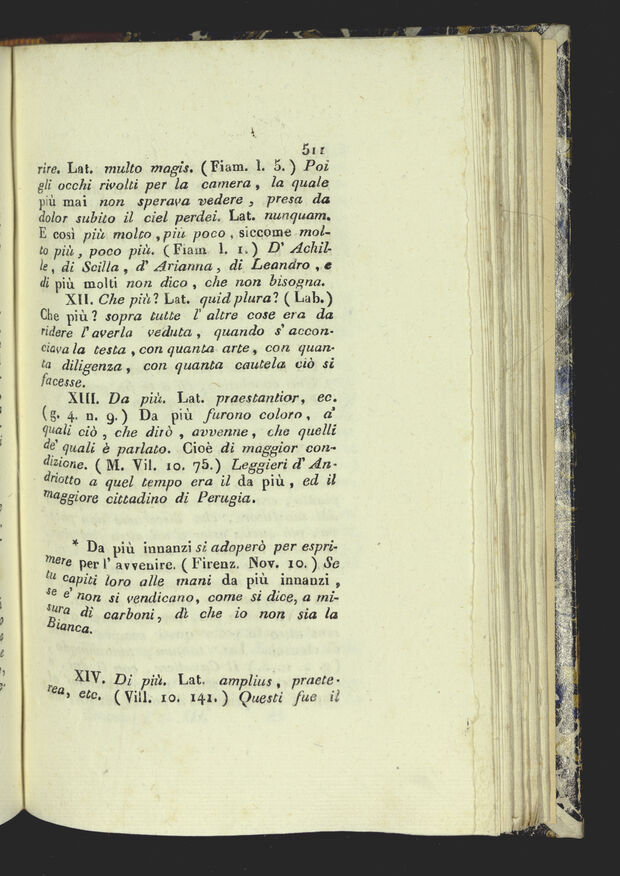 511
rire. Lat. multo magis. (Fiam. l. 5.) Poi
gli occhi rivolti per la camera, la quale
più mai non sperava vedere, presa da
dolor subito il ciel perdei. Lat. nunquam.
E così più molto, più poco, siccome mol-
to più, poco più. (Fiam l. 1.) D' Achil-
le, di Scilla, d' Arianna, di Leandro, e
di più molti non dico, che non bisogna.
XII. Che più? Lat. quid plura? (Lab.)
Che più? sopra tutte l' altre cose era da
ridere l' averla veduta, quando s' accon-
ciava la testa, con quanta arte, con quan-
ta diligenza, con quanta cautela ciò si
facesse.
XIII. Da più. Lat. praestantior, ec.
(g. 4. n. 9.) Da più furono coloro, a'
quali ciò, che dirò, avvenne, che quelli
de' quali è parlato. Cioè di maggior con-
dizione. (M. Vil. 10. 75.) Leggieri d' An-
driotto a quel tempo era il da più, ed il
maggiore cittadino di Perugia.
* Da più innanzi si adoperò per espri-
mere per l' avvenire. (Firenz. Nov. 10.) Se
tu capiti loro alle mani da più innanzi,
se e' non si vendicano, come si dice, a mi-
sura di carboni, dì che io non sia la
Bianca.
XIV. Di più. Lat. amplius, praete-
rea, etc. (Vill. 10. 141.) Questi fue il